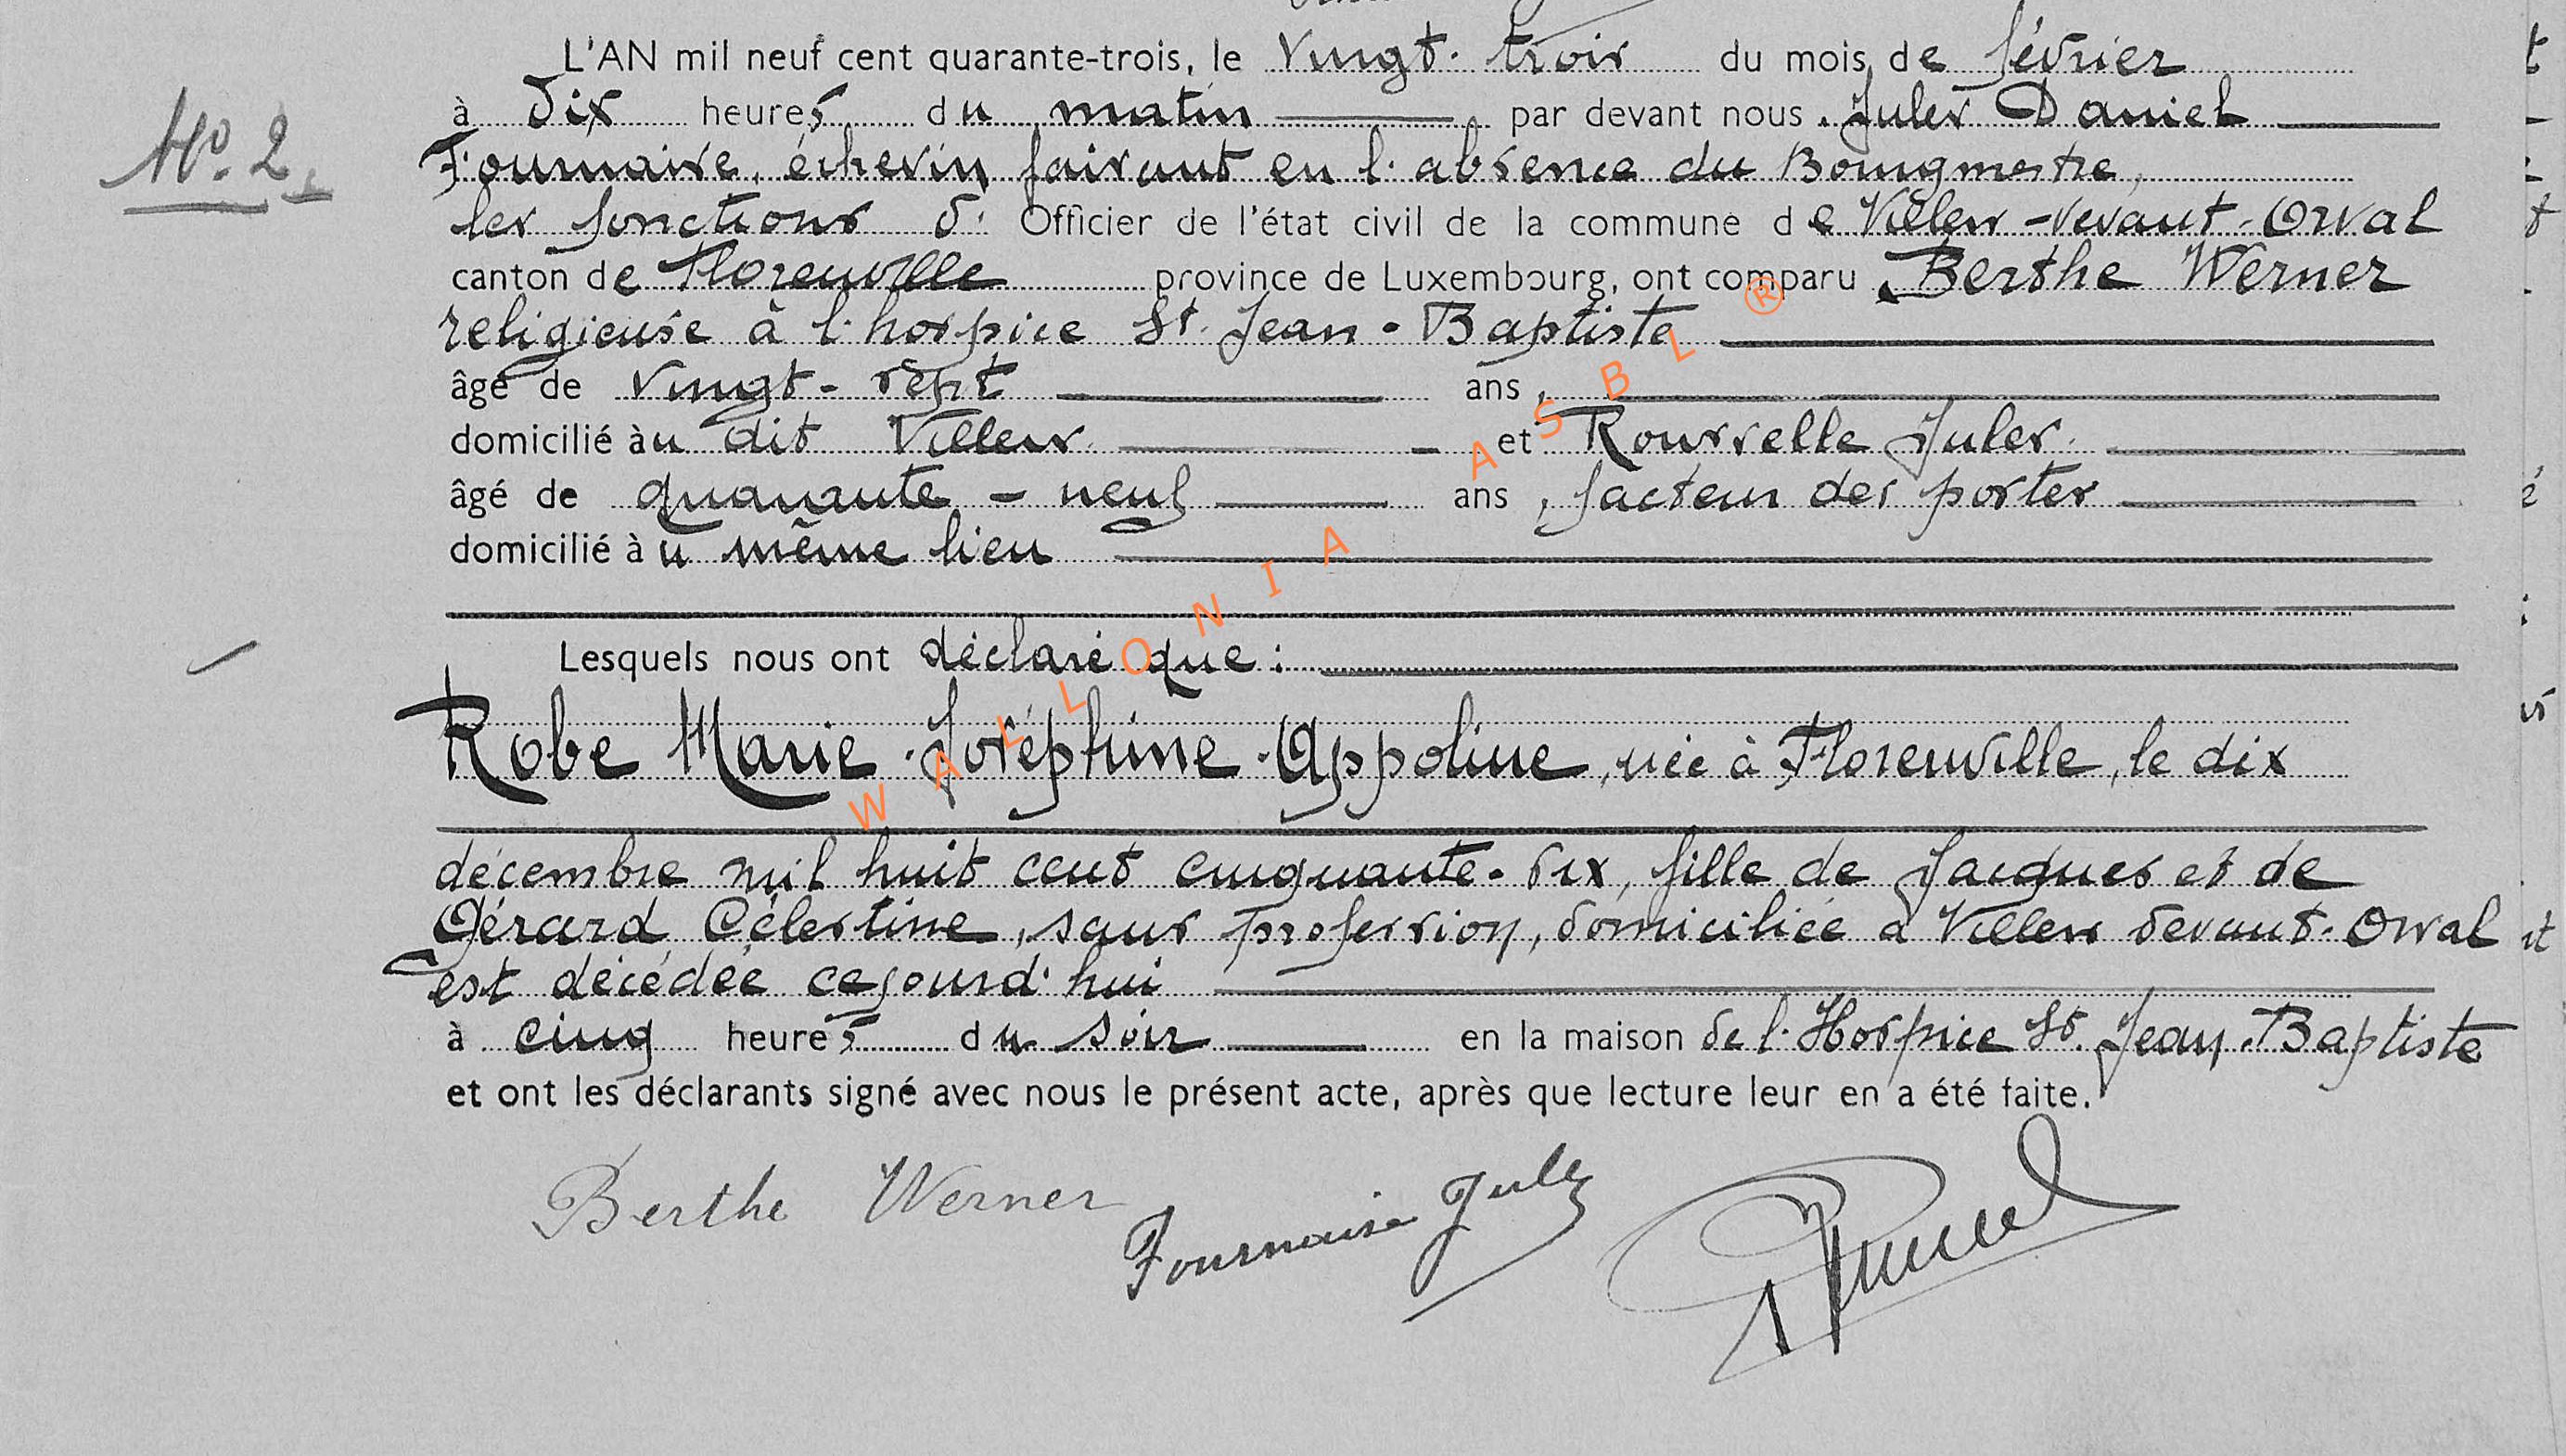 L'AN mil neuf cent quarante-trois, le Vingt-trois du mois de février
à dix heures du matin par devant nous Jules Daniel
N° 2
Fournaire, échevin faisant en l'absence du Bourgmestre,
les fonctions d' Officier de l'état civil de la commune de Villers-devant-Orval
canton de Florenville province de Luxembourg, ont comparu Berthe Werner
religieuse à l'hospice St. Jean-Baptiste
âgé de vingt-sept ans,
domicilié àu dit Villers et Rousselle Jules
âgé de quarante-neuf ans, facteur des postes
domicilié àu même lieu
Lesquels nous ont déclaré que :
Robe Marie-Joséphine-Appoline, née à Florenville, le dix
décembre mil huit cent cinquante-dix, fille de Jacques et de
Gérard Célestine, sans profession, domiciliée à Villers devant-Orval
est décédée cejourd'hui
à cinq heures du soir en la maison de l'Hospice St. Jean-Baptiste
et ont les déclarants signé avec nous le présent acte, après que lecture leur en a été faite.
Berthe Werner Fournaise Jules
WALLONIA ASBL ®